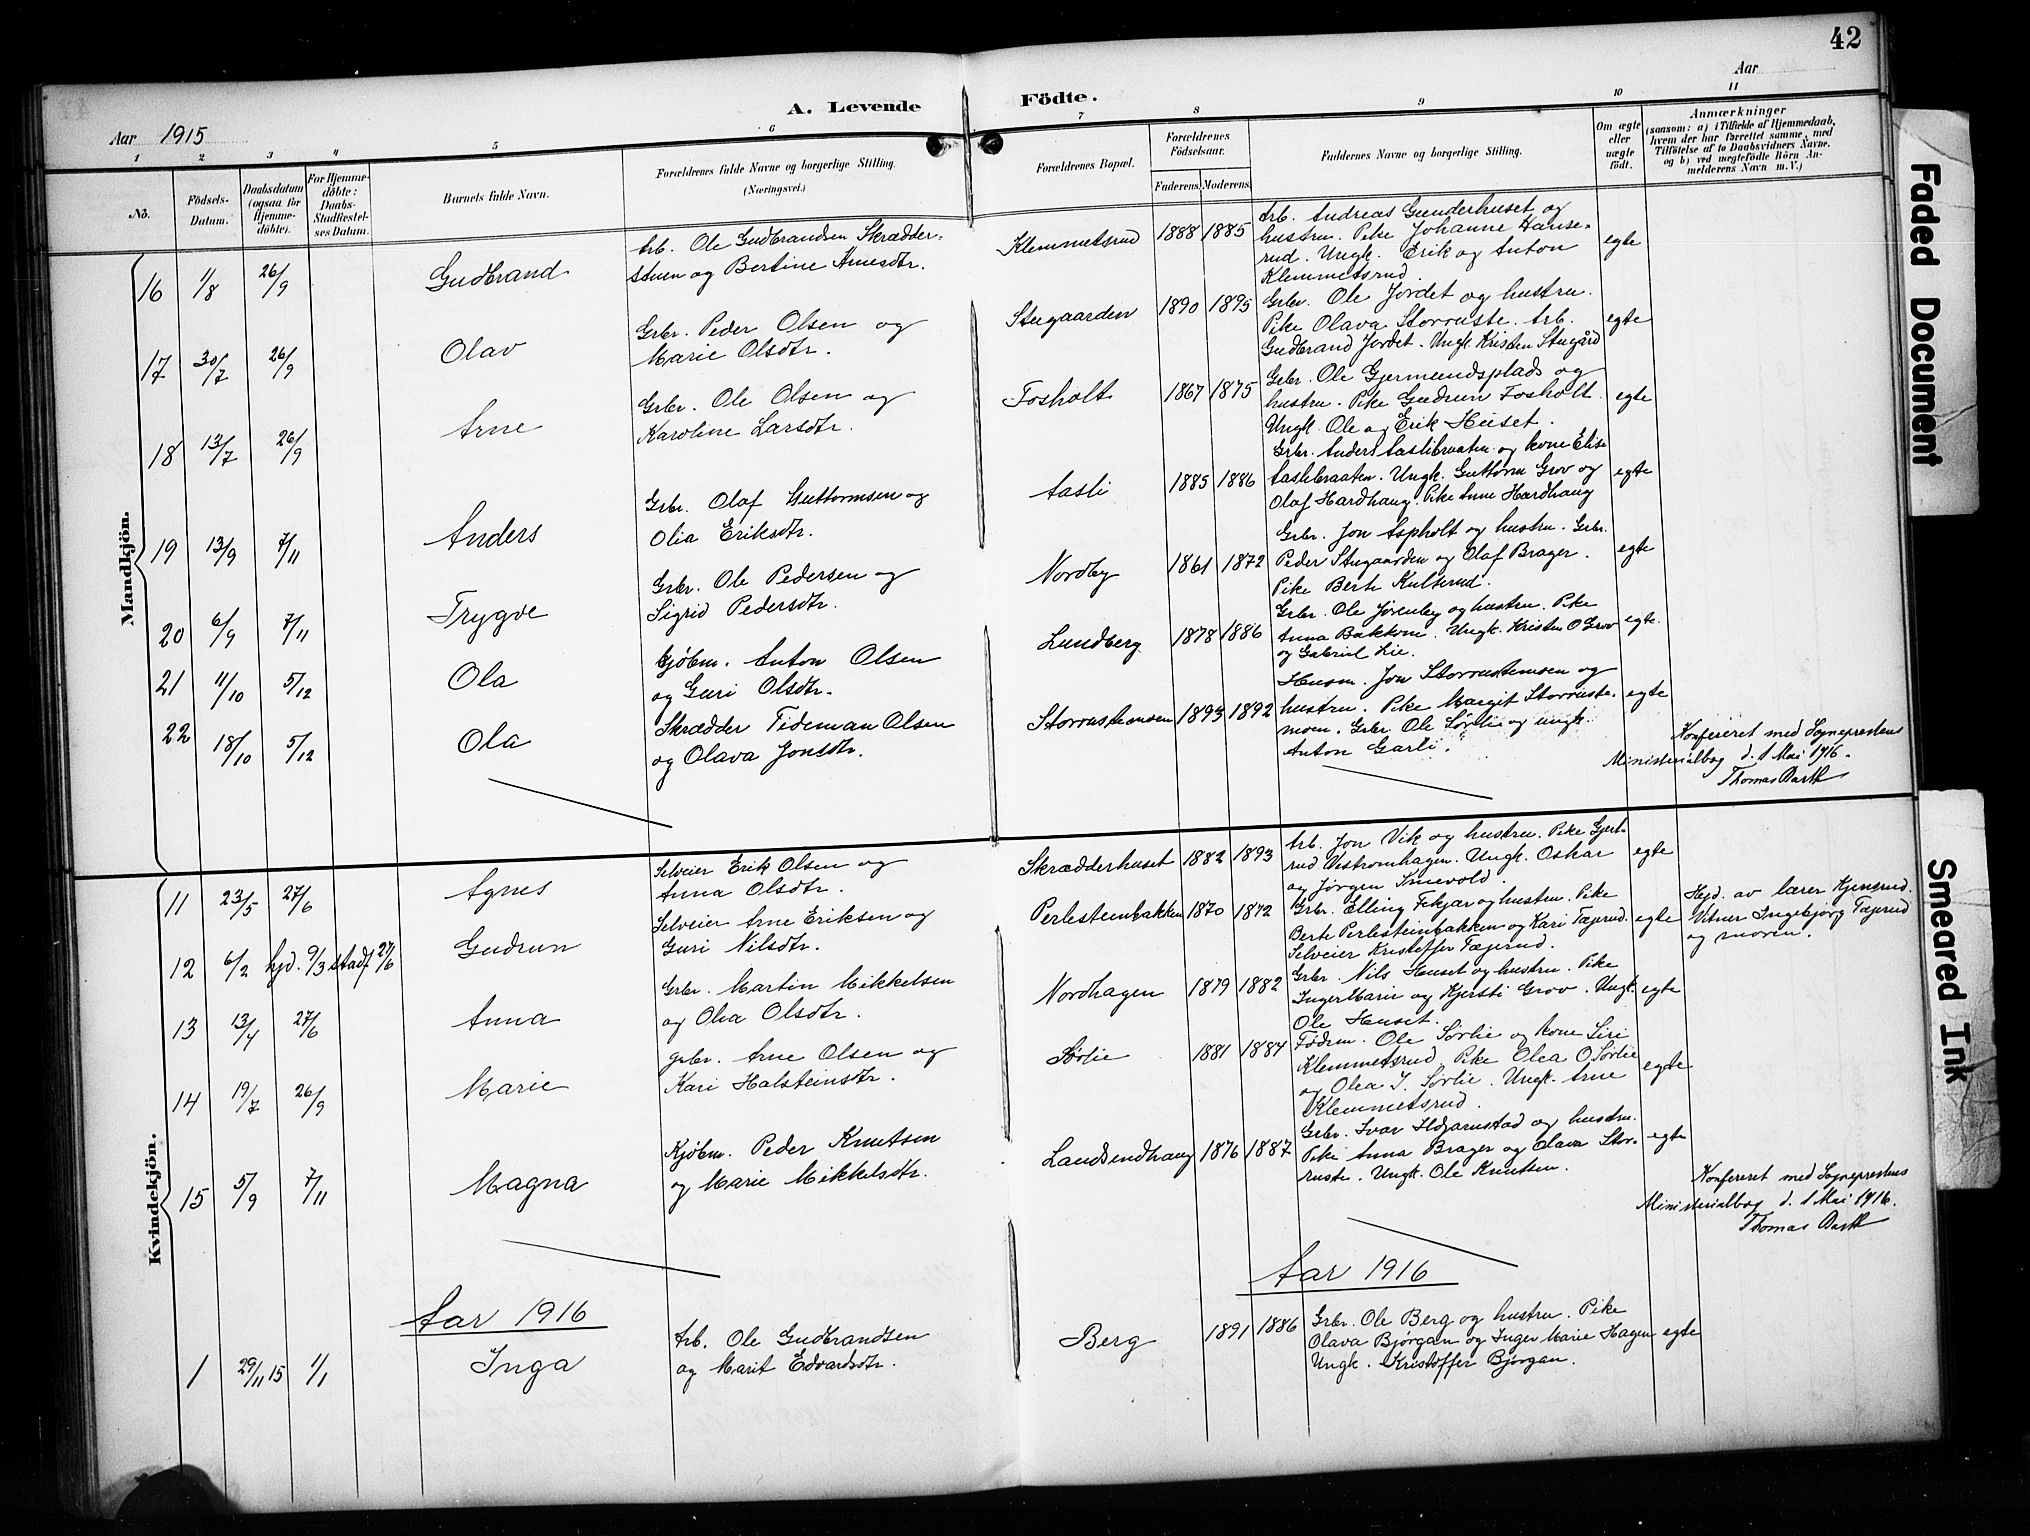 42
Aar 1915
A. Levende Födte.
Aar
1 2 3 4 5 6 7 8 9 10 11
No.
Födsels-Datum.
Daabsdatum (ogsaa for Hjemme-döbte).
For Hjemme-döbte: Daabs-Stadfæstel-ses Datum.
Barnets fulde Navn.
Forældrenes fulde Navne og borgerlige Stilling.
(Næringsvei.)
Forældrenes Bopæl.
Forældrenes Födselsaar.
Faderens. Moderens.
Faddernes Navne og borgerlige Stilling.
Om ægte eller uægte födt.
Anmærkninger
(saasom: a) i Tilfælde af Hjemmedaab, hvem der har forrettet samme, med Tilföielse af to Daabsvidners Navne, og b) ved uægtefödte Börn An-melderens Navn m. V.)
Mandkjön.
16 1/8 26/9 Gudbrand
Arb. Ole Gudbrandsen Skrædder-
stuen og Bertine Arnesdtr.
Klemmetsrud 1888 1885
Arb. Andreas Gunderhuset og
hustru. Pike Johanne Hanse-
rud. Ungk. Erik og Anton
Klemmetsrud.
egte
17 30/7 26/9 Olav
Grbr. Peder Olsen og
Marie Olsdtr.
Stugaarden 1890 1895
Grbr. Ole Jordet og hustru.
Pike Olava Storruste. Arb.
Gudbrand Jordet. Ungk. Kristen Stugård
egte
18 13/7 26/9 Arne
Grbr. Ole Olsen og
Karoline Larsdtr.
Fosholt 1867 1875
Grbr. Ole Gjermundsplads og
hustru. Pike Gudrun Fosholt.
Ungk. Ole og Erik Huset.
egte
19 13/9 7/11 Anders
Grbr. Olaf Guttormsen og
Olia Eriksdtr.
Aasli 1885 1886
Grbr. Anders Aaslibraaten og kone Elise
Aaslibraaten. Ungk. Guttorm Grov og
Olaf Hardhaug. Pike Anne Hardhaug
egte
20 6/9 7/11 Trygve
Grbr. Ole Pedersen og
Sigrid Pedersdtr.
Nordby 1861 1872
Grbr. Jon Aspholt og hustru. Grbr.
Peder Stugaarden og Olaf Brager.
Pike Berte Kulserud.
egte
21 11/10 5/12 Ola
Kjøbm. Anton Olsen
og Guri Olsdtr.
Lundberg 1878 1886
Grbr. Ole Jørenby og hustru. Pike
Anna Bakkene. Ungk. Kristen O Grov
og Gabriel Lie.
egte.
22 18/10 5/12 Ola
Skrædder Tideman Olsen
og Olava Jonsdtr.
Storrustemoen 1893 1892
Husm. Jon Storrustemoen og
hustru. Pike Margit Storruste-
moen. Grbr. Ole Sørlie og ungk.
Anton Garli.
egte
Konfereret med Sogneprestens
Ministerialbog d. 1 Mai 1916.
Thomas Barth
Kvindekjön.
11 23/5 27/6 Agnes
Selveier Erik Olsen og
Anna Olsdtr.
Skrædderhuset 1882 1893
Arb. Jon Vik og hustru. Pike Gjert-
rud Vestromhagen. Ungk. Oskar
og Jørgen Snevold.
egte
12 6/2 hjd. 9/3 stadf 27/6 Gudrun
Selveier Arne Eriksen og
Guri Nilsdtr.
Perlesteinbakken 1870 1872
Grbr. Elling Fekjær og hustru. Pike
Berte Perlesteinbakken og Kari Tæprud.
Selveier Kristoffer Tæprud.
egte
Hejd. av lærer Hjensrud.
Vitner Ingebjørg Tæprud
og moren.
13 13/4 27/6 Anna
Grbr. Martin Mikkelsen
og Olia Olsdtr.
Nordhagen 1879 1882
Grbr. Nils Huset og hustru. Pike
Inger Marie og Kjersti Grov. Ungk.
Ole Huset.
egte
14 19/7 26/9 Marie
grbr. Arne Olsen og
Kari Halsteinsdtr.
Sørlie 1881 1884
Fødrm. Ole Sørlie og kone Siri
Klemmetsrud. Pike Olea O Sørlie
og Olea I. Sørlie. Ungk. Arne
Klemmetsrud.
egte
15 5/9 7/11 Magna
Kjøbm. Peder Knutsen
og Marie Mikkelsdtr.
Landsendhaug 1876 1887
Grbr. Ivar Hjarnstad og hustru.
Pike Anna Brager og Olava Stor-
ruste. Ungk. Ole Knutsen.
egte
Konfereret med Sogneprestens
Ministerialbog d. 1 Mai 1916.
Thomas Barth
Aar 1916
Aar 1916
1 29/11 15 1/1 Inga
Arb. Ole Gudbrandsen
og Marit Edvardsdtr.
Berg 1891 1886
Grbr. Ole Berg og hustru. Pike
Olava Bjørgan og Inger Marie Hagen
Ungk. Kristoffer Bjørgan.
egte
Faded Document
Smeared Ink